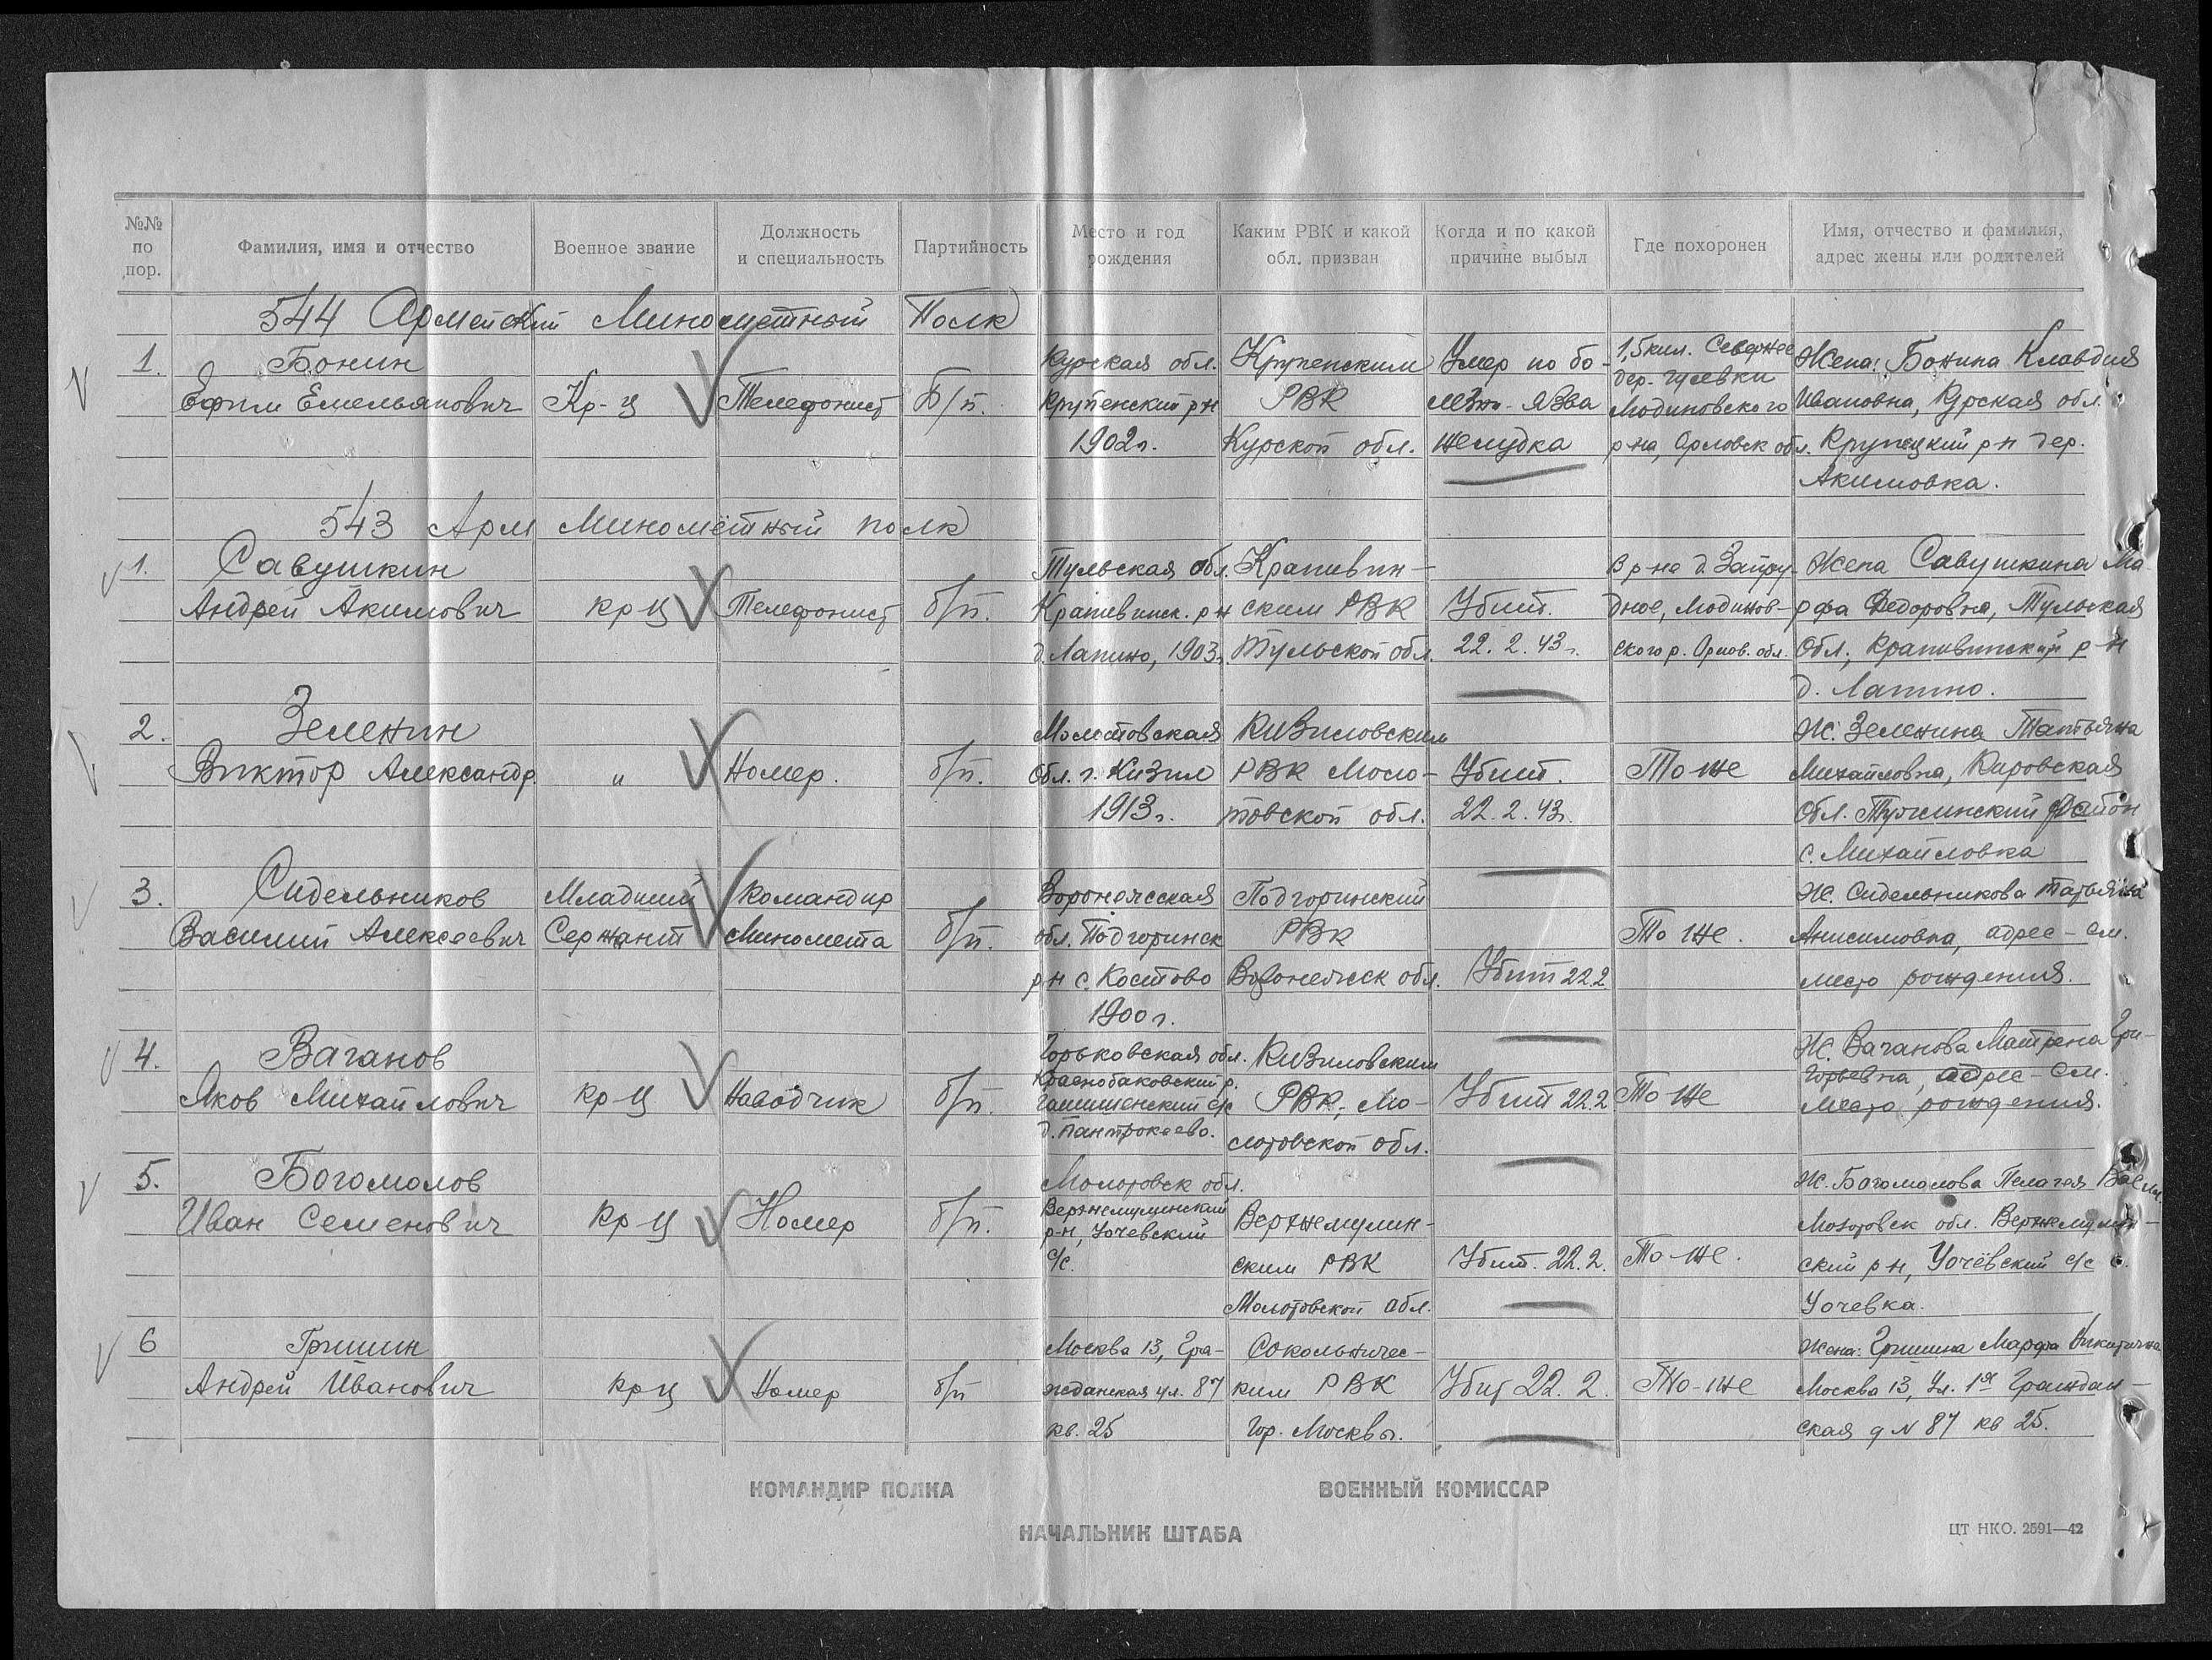 №№ по пор.
Фамилия, имя и отчество
Военное звание
Должность и специальность
Партийность
Место и год рождения
Каким РВК и какой обл. призван
Когда и по какой причине выбыл
Где похоронен
Имя, отчество и фамилия, адрес жены или родителей
544 Армейский Миномётный Полк
1.
Бонин
Ефим Емельянович
Кр-ц
Телефонист
Б/п.
Курская обл.
Крупенский р-н
1902г.
Крупенским
РВК
Курской обл.
Умер по бо-
лезни - язва
желудка
1,5 кил. Севернее
дер. Гулевки
Модиновского
р-на, Орловск обл.
Жена: Бонина Клавдия
Ивановна, Курская обл.
Крупецкий р-н дер.
Акимовка.
543 Арм Миномётный полк
1.
Савушкин
Андрей Акимович
кр-ц
Телефонист
б/п.
Тульская обл.
Крапивинск. р-н
д. Лапино, 1903г.
Крапивин-
ским РВК
Тульской обл.
Убит.
22. 2. 43г.
В р-не д. Запру-
дное, Модинов-
ского р. Орлов. обл.
Жена Савушкина Ма-
рфа Федоровна, Тульская
обл., Крапивинский р-н
д. Лапино.
2.
Зеленин
Виктор Александр.
"
Номер.
б/п.
Молотовская
обл. г. Кизил
1913г.
Кизиловским
РВК Моло-
товской обл.
Убит.
22. 2. 43г.
То-же
Ж. Зеленина Татьяна
Михайловна, Кировская
обл. Тужинский район
с. Михайловка
3.
Сидельников
Василий Алексеевич
Младший
Сержант
Командир
Миномета
б/п.
Воронежсская
обл. Подгоринск
р-н с. Костово
1900г.
Подгоринский
РВК
Воронежск обл.
Убит 22.2
То же.
Ж. Сидельникова Татьяна
Анисимовна, адрес - см.
место рождения.
4.
Ваганов
Яков Михайлович
кр-ц
Наводчик
б/п.
Горьковская обл.
Краснобаковский р.
с/с
Кизиловским
РВК, Мо-
лотовской обл.
Убит 22.2
То же
Ж. Ваганова Матрена Гри-
горьевна, адрес - см.
Место рождения.
5.
Богомолов
Иван Семенович
кр-ц
Номер
б/п.
Молотовск обл.
Верхнемулинский
р-н, Уочевский
с/с.
Верхнемулин-
ским РВК
Молотовской обл.
Убит. 22.2.
То-же.
Ж. Богомолова Пелагея Васил.
Молотовск обл. Верхнемулин-
ский р-н, Уочёвский с/с с.
Уочевка.
6
Гришин
Андрей Иванович
кр-ц
Номер
б/п
Москва 13, Гра-
жданская ул. 87
кв. 25
Сокольничес-
ким РВК
Гор. Москвы.
Убит 22. 2.
То-же
Жена: Гришина Марфа Никитична
Москва 13, Ул. 1я Граждан-
ская д N 87 кв 25.
КОМАНДИР ПОЛКА
ВОЕННЫЙ КОМИССАР
НАЧАЛЬНИК ШТАБА
ЦТ НКО. 2591—42